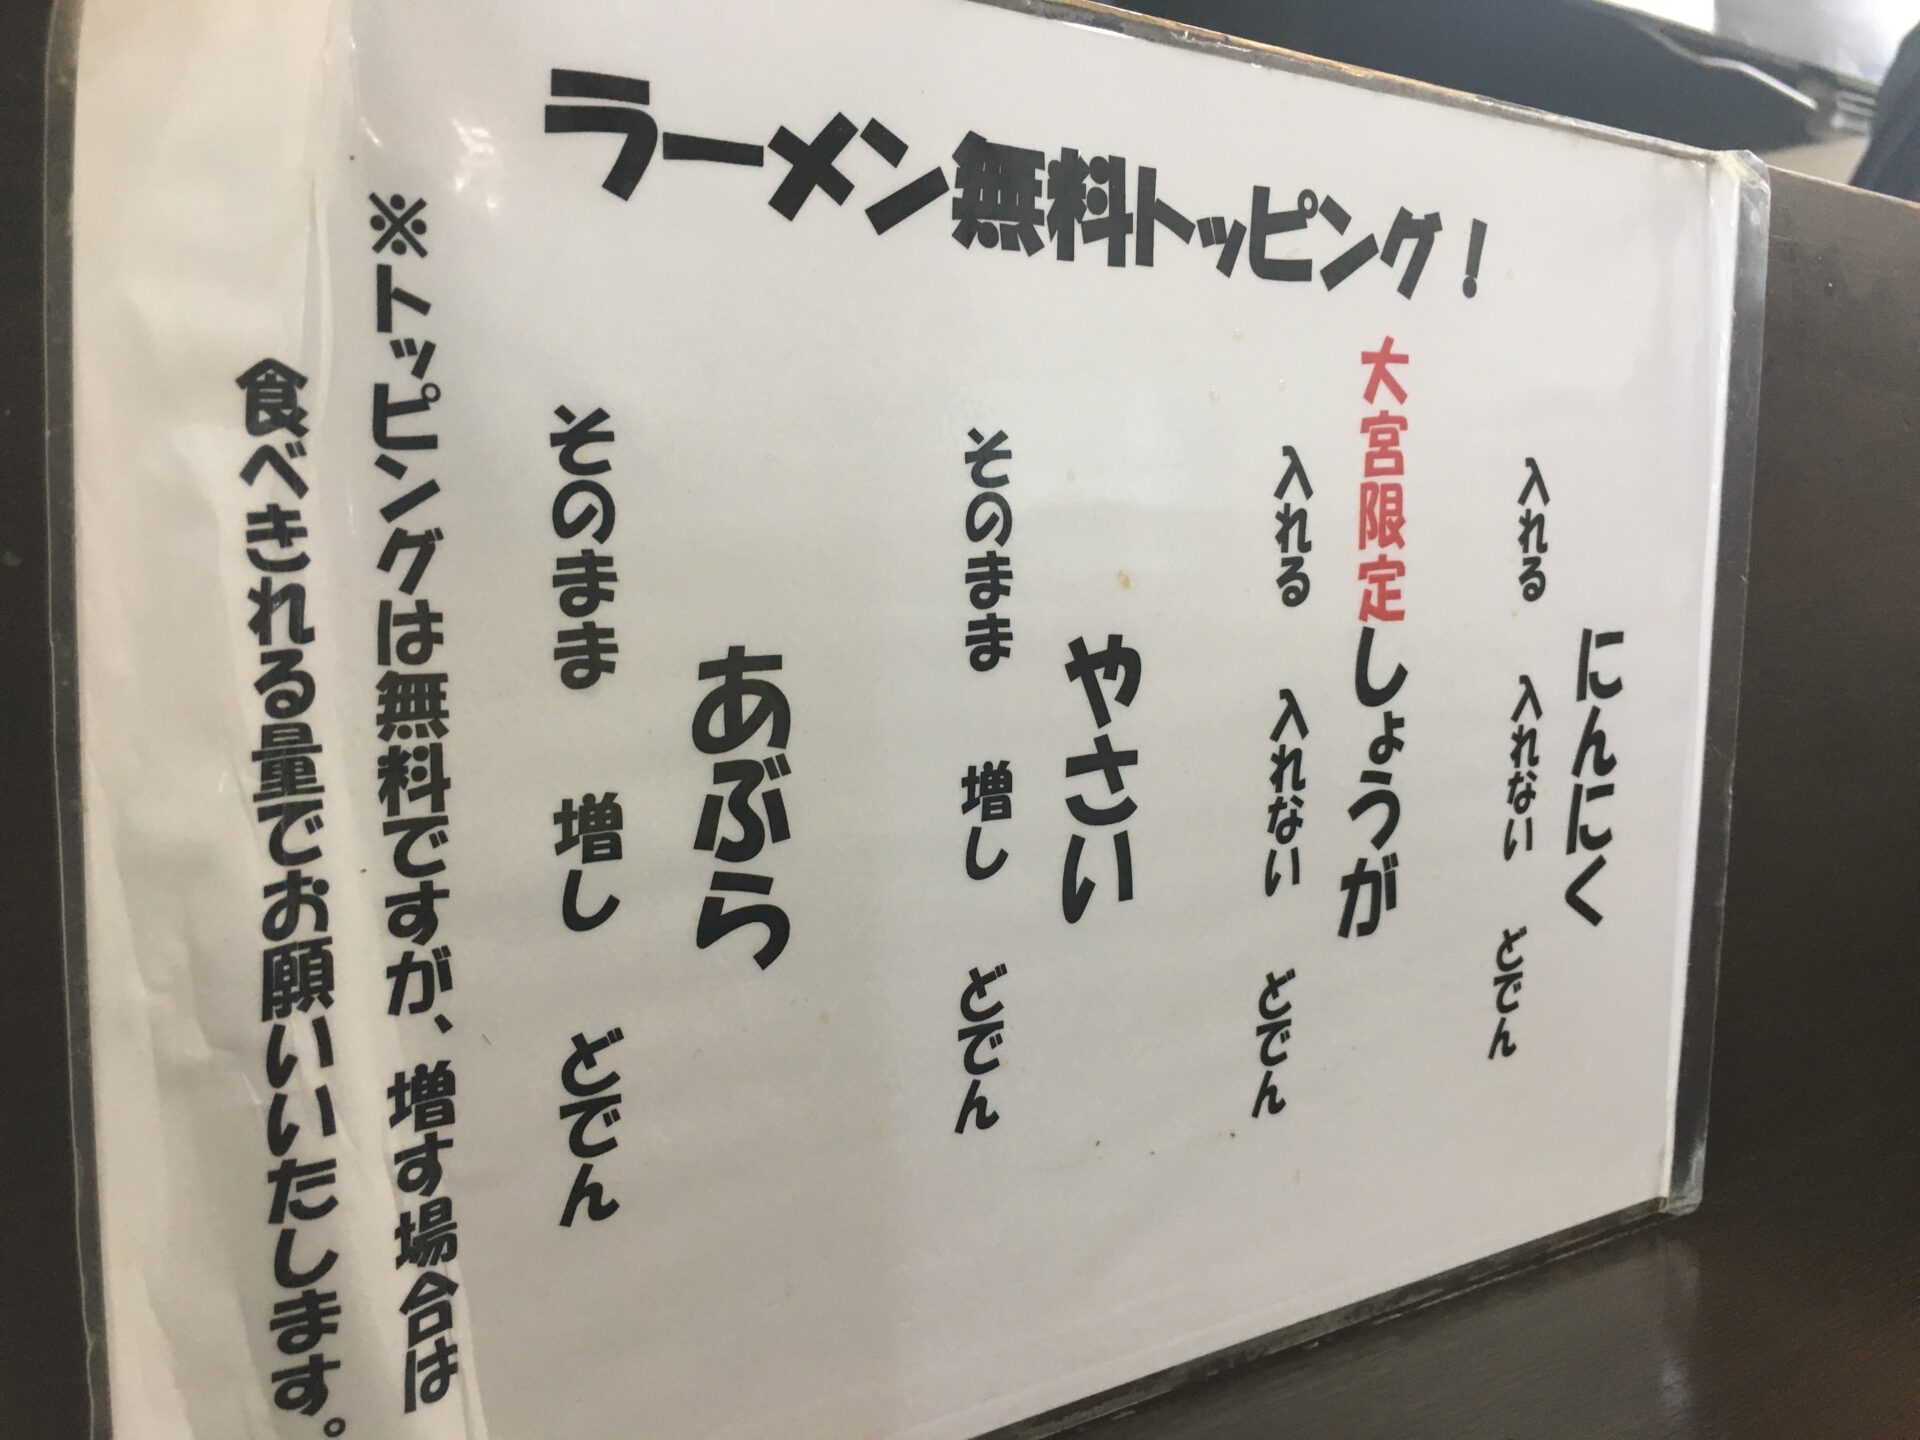 ラーメン無料トッピング！
にんにく
入れる 入れない どでん
大宮限定しょうが
入れる 入れない どでん
やさい
そのまま 増し どでん
あぶら
そのまま 増し どでん
※トッピングは無料ですが、増す場合は
食べきれる量でお願いいたします。